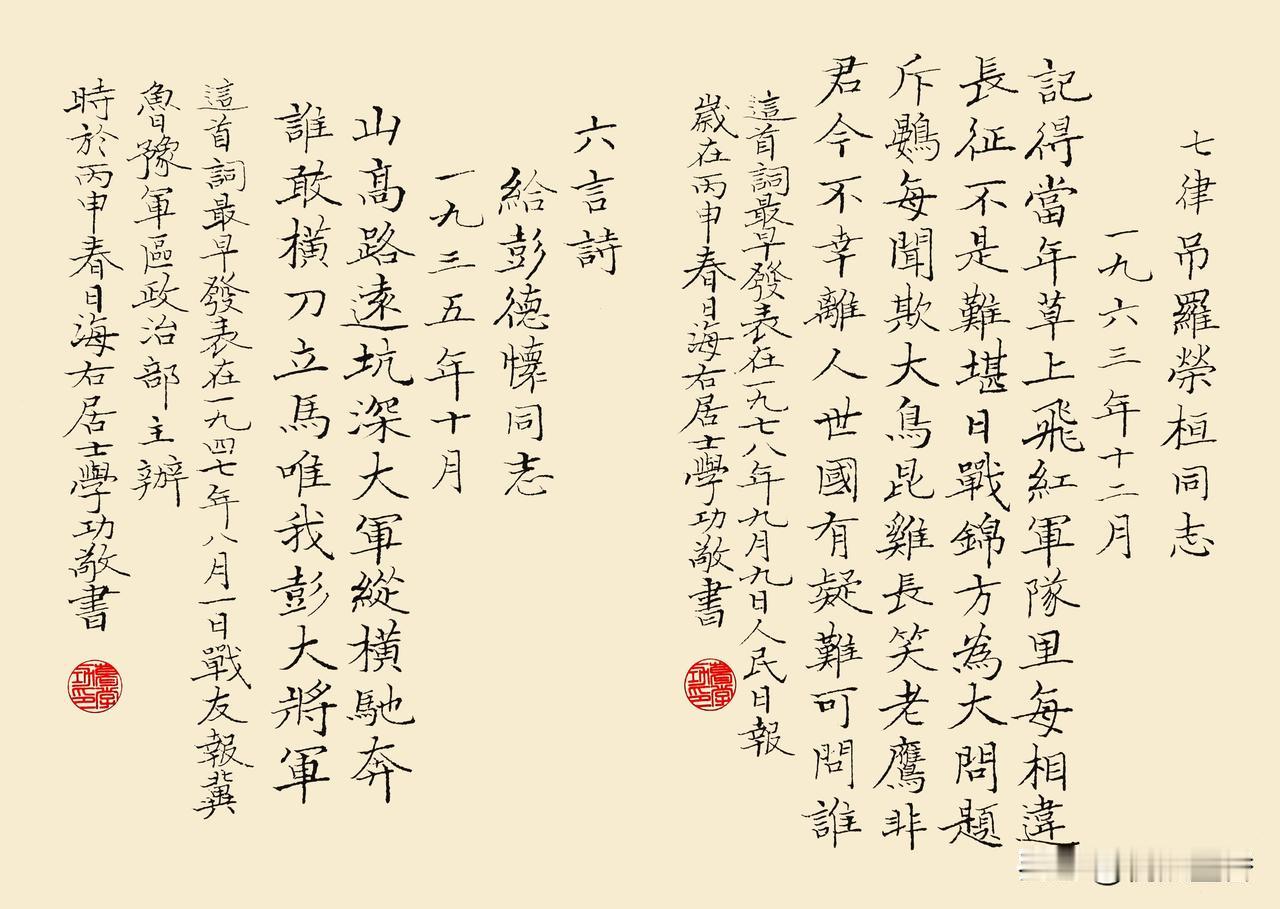 七律吊羅榮桓同志
一九六三年十二月
記得當年草上飛紅軍隊里每相違
長征不是難堪日戰錦方為大問題
斥鷃每聞欺大鳥昆雞長笑老鷹非
君今不幸離人世國有疑難可問誰
這首詞最早發表在一九七八年九月九日人民日報
歲在丙申春日海右居士學功敬書
六言詩
給彭德懷同志
一九三五年十月
山高路遠坑深大軍縱橫馳奔
誰敢橫刀立馬唯我彭大將軍
這首詞最早發表在一九四七年八月一日戰友報冀
魯豫軍區政治部主辦
時於丙申春日海右居士學功敬書